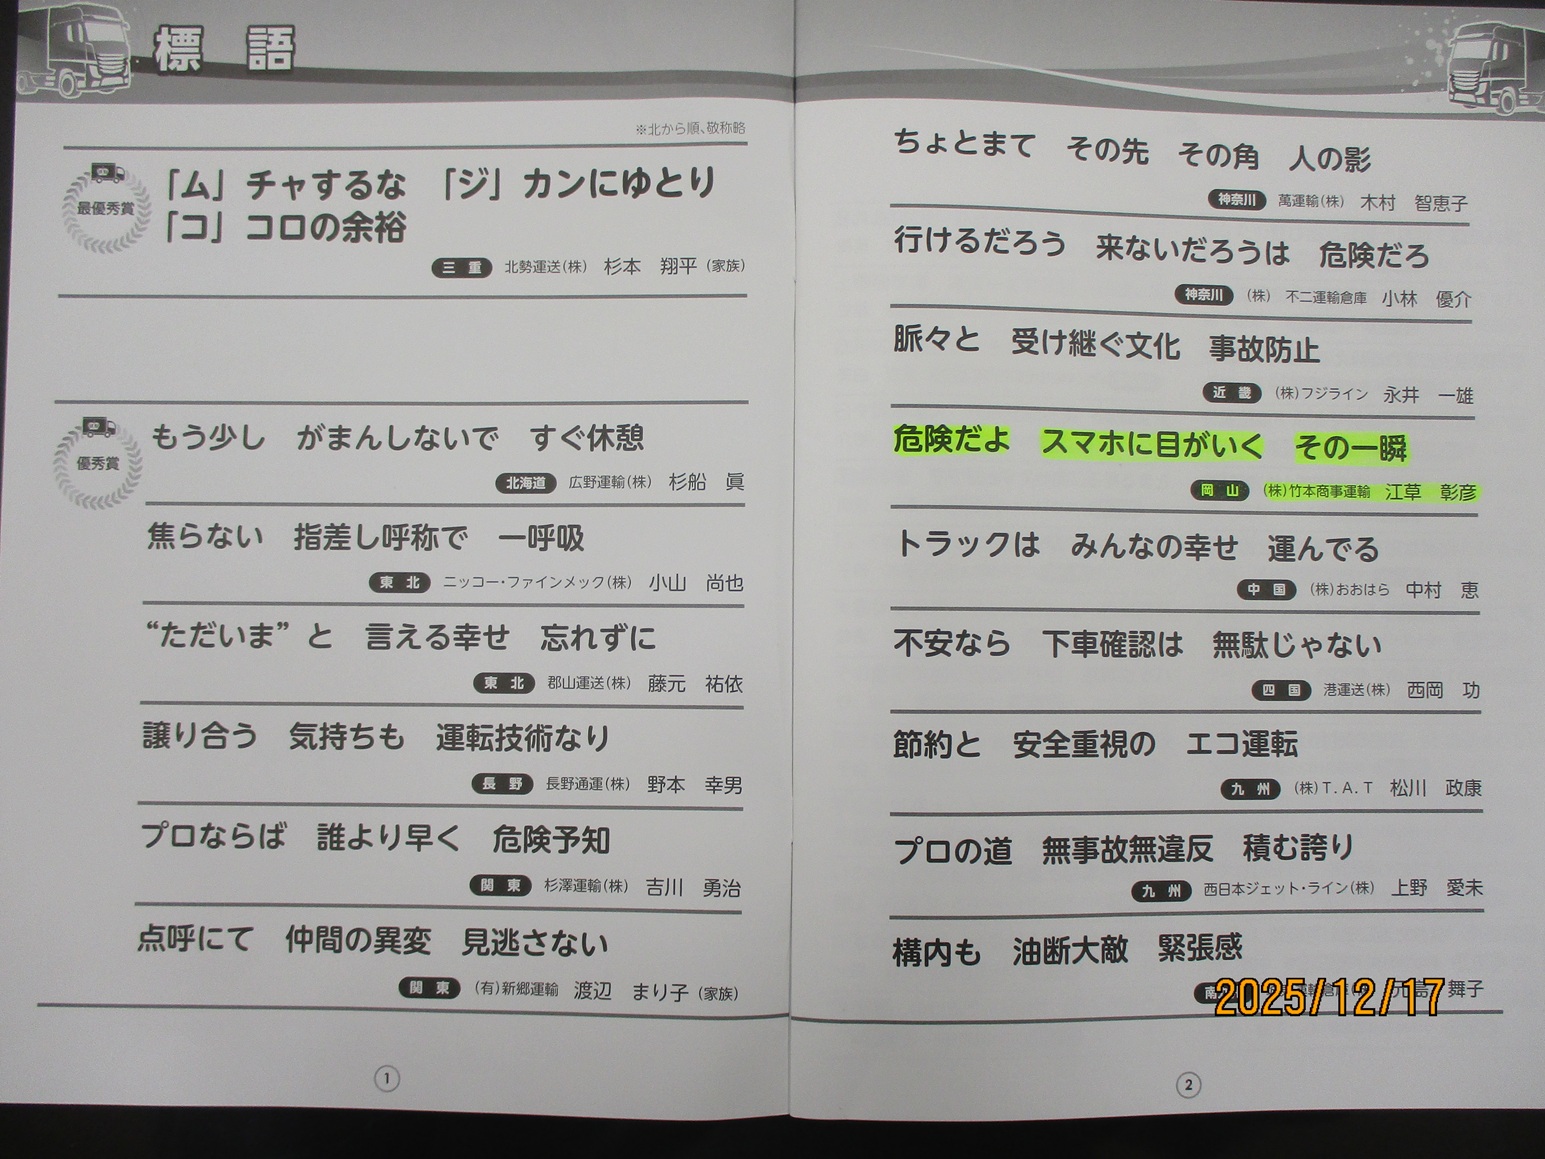 標 語
※北から順、敬称略
最優秀賞
「ム」チャするな 「ジ」カンにゆとり
「コ」コロの余裕
三 重 北勢運送(株) 杉本 翔平(家族)
優秀賞
もう少し がまんしないで すぐ休憩
北海道 広野運輸(株) 杉船 眞
焦らない 指差し呼称で 一呼吸
東 北 ニッコー・ファインメック(株) 小山 尚也
“ただいま”と 言える幸せ 忘れずに
東 北 郡山運送(株) 藤元 祐依
譲り合う 気持ちも 運転技術なり
長 野 長野通運(株) 野本 幸男
プロならば 誰より早く 危険予知
関 東 杉澤運輸(株) 吉川 勇治
点呼にて 仲間の異変 見逃さない
関 東 (有)新郷運輸 渡辺 まり子(家族)
1
ちょとまて その先 その角 人の影
神奈川 萬運輸(株) 木村 智恵子
行けるだろう 来ないだろうは 危険だろ
神奈川 (株) 不二運輸倉庫 小林 優介
脈々と 受け継ぐ文化 事故防止
近 畿 (株)フジライン 永井 一雄
危険だよ スマホに目がいく その一瞬
岡 山 (株)竹本商事運輸 江草 彰彦
トラックは みんなの幸せ 運んでる
中 国 (株)おおはら 中村 恵
不安なら 下車確認は 無駄じゃない
四 国 港運送(株) 西岡 功
節約と 安全重視の エコ運転
九 州 (株)T.A.T 松川 政康
プロの道 無事故無違反 積む誇り
九 州 西日本ジェット・ライン(株) 上野 愛未
構内も 油断大敵 緊張感
南 舞子
2025/12/17
2